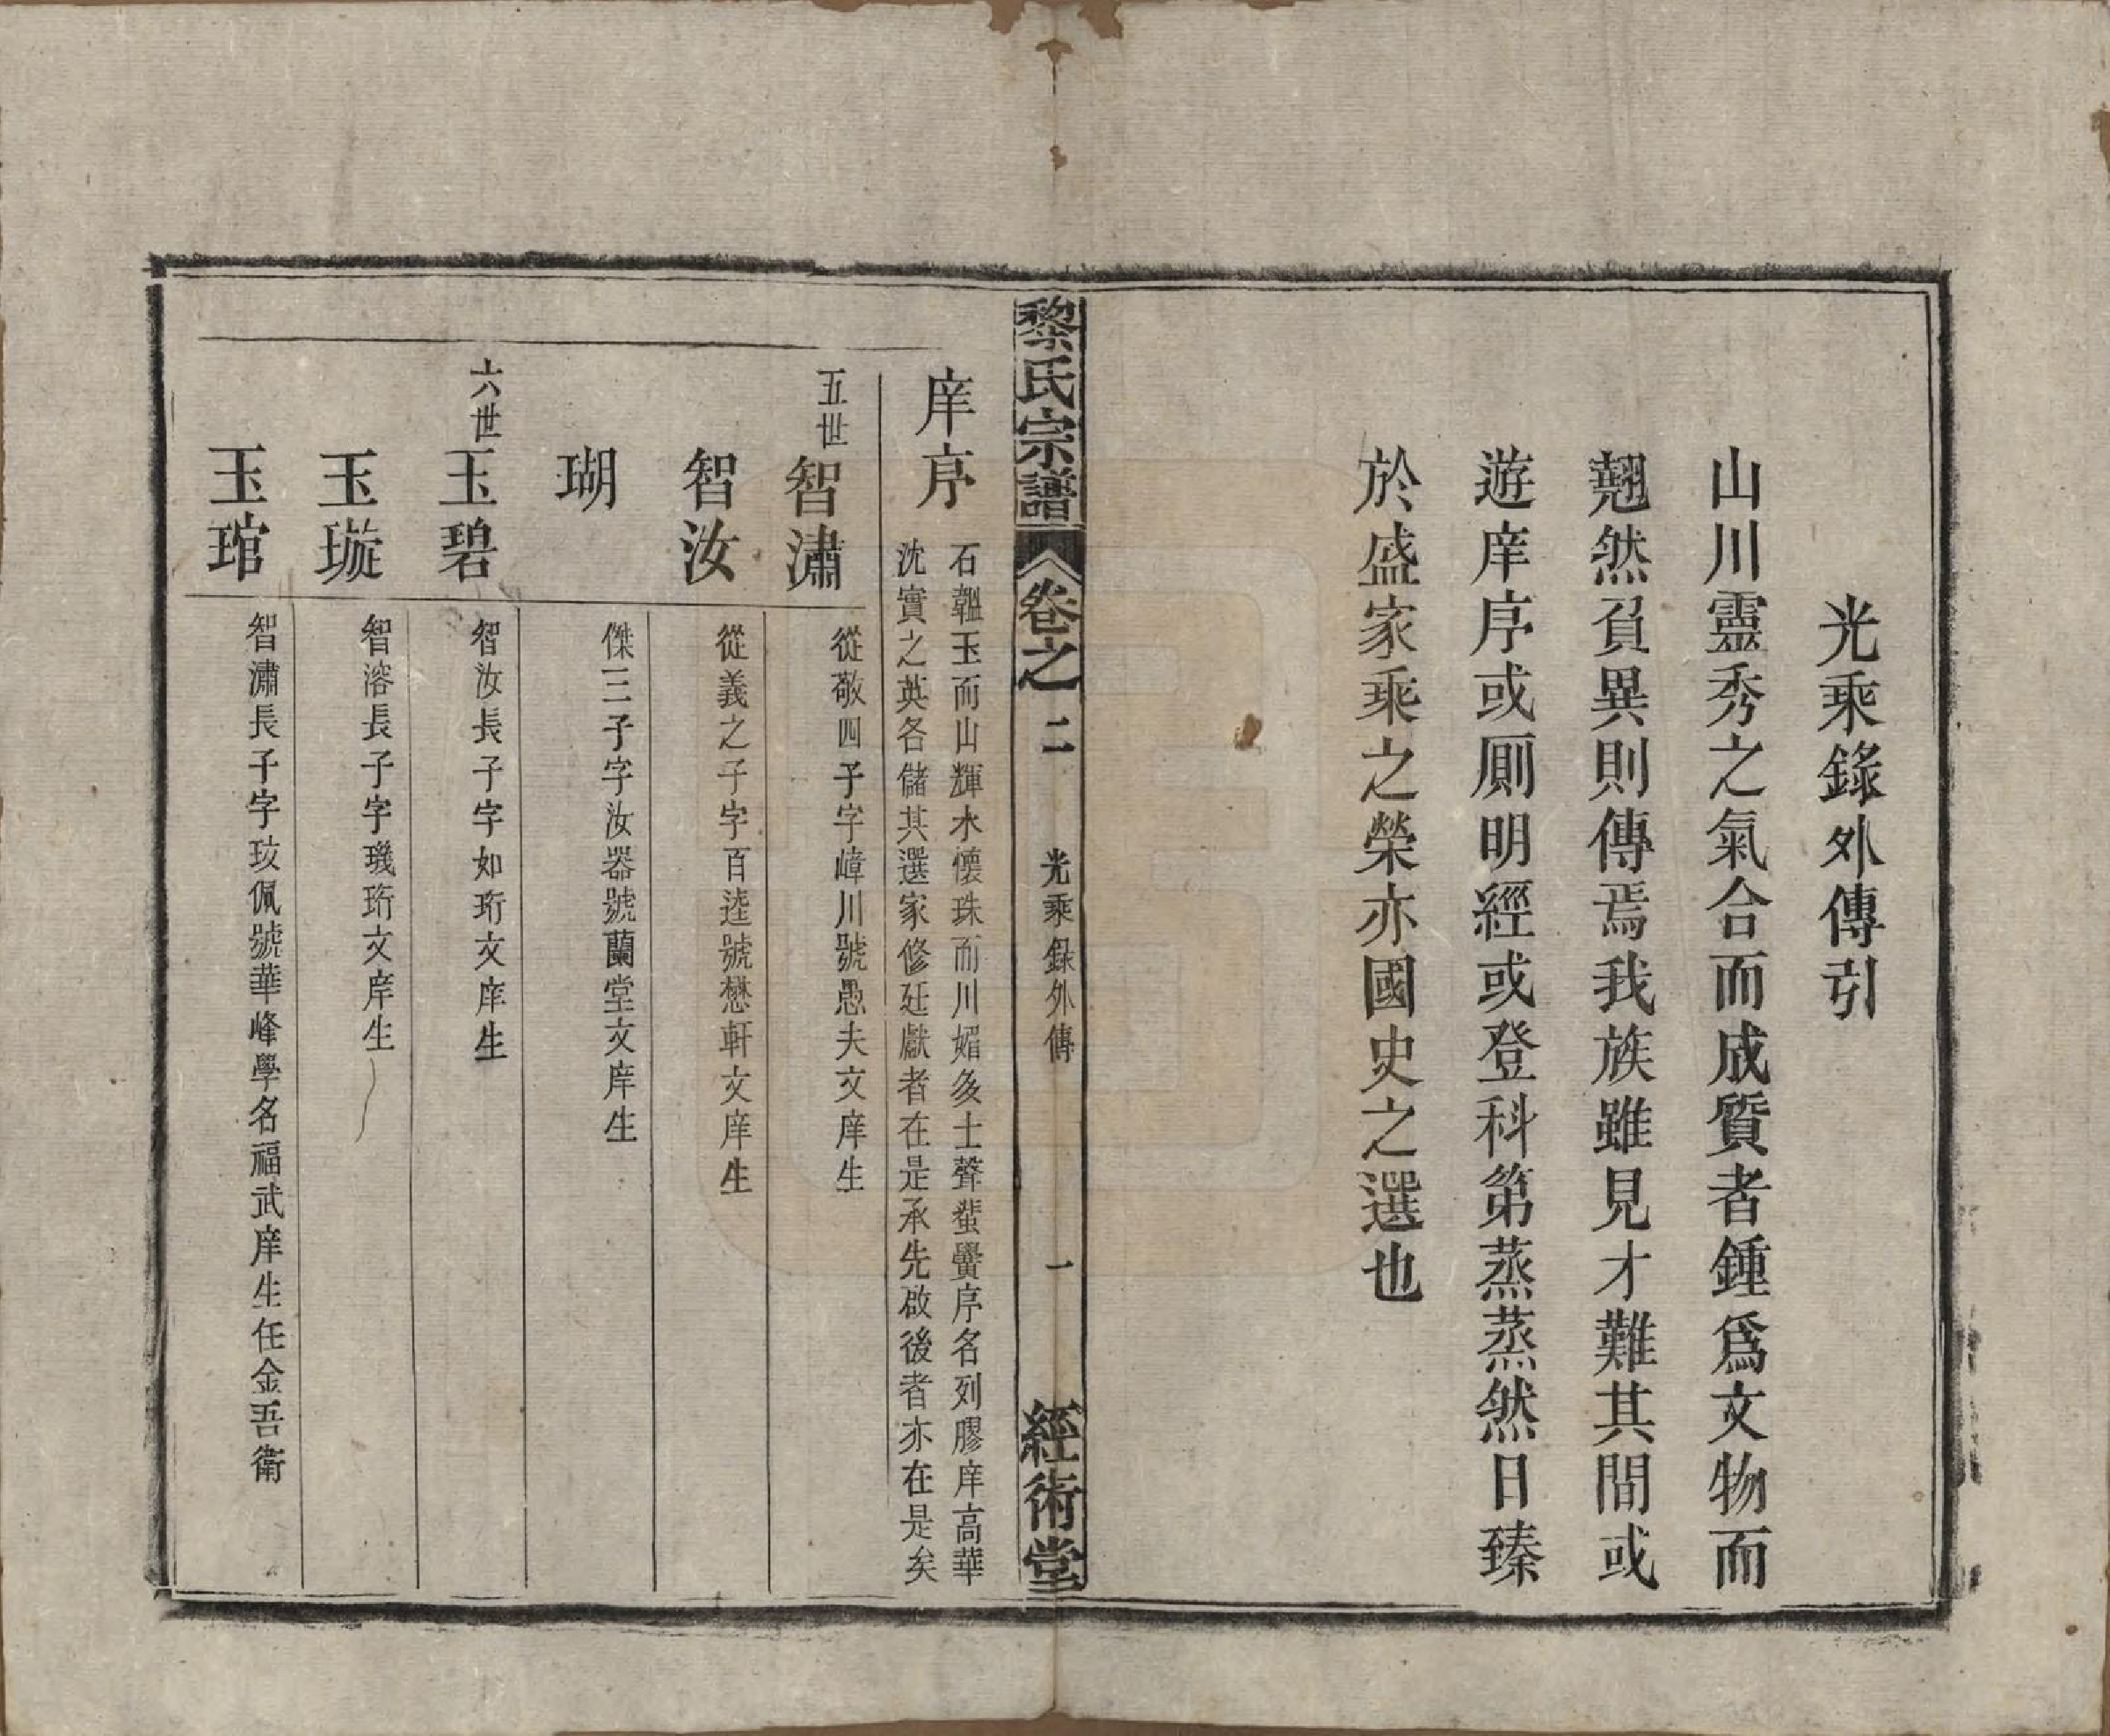 光乘錄外傳引
山川靈秀之氣合而成質者鍾爲文物而
翹然負異則傳焉我族雖見才難其間或
遊庠序或厠明經或登科第蒸蒸然日臻
於盛家乘之榮亦國史之選也
黎氏宗譜 卷之二 光乘錄外傳 一 經術堂
庠序
石韞玉而山輝水懷珠而川媚多士聲蜚黌序名列膠庠高華
沈實之英各儲其選家修廷獻者在是承先啟後者亦在是矣
五世
智潚 從敬四子字嶂川號愚夫文庠生
智汝 從義之子字百逵號懋軒文庠生
瑚 傑三子字汝器號蘭堂文庠生
六世
玉碧 智汝長子字如珩文庠生
玉璇 智溶長子字璣珩文庠生
玉琯 智潚長子字玫佩號華峰學名福武庠生任金吾衛